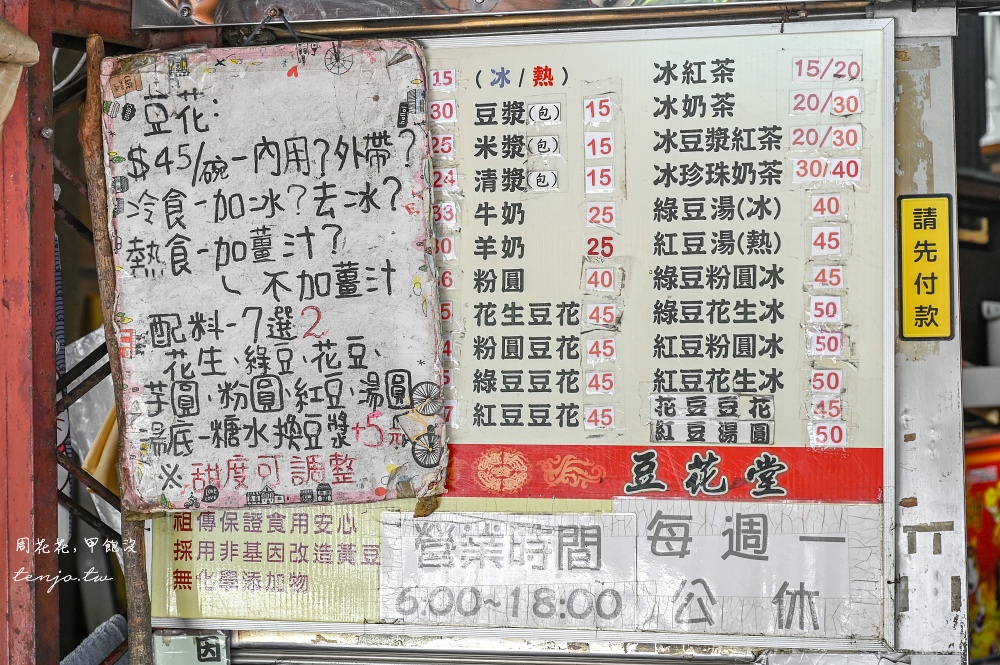 豆花:
$45/碗-內用?外帶?
冷食-加冰?去冰?
熱食-加薑汁?
不加薑汁
配料-7選2
花生、綠豆、花豆、
芋圓、粉圓、紅豆、湯圓
湯底-糖水換豆漿+5元
※甜度可調整
15
30
25
24
(冰/熱)
豆漿(包) 15
米漿(包) 15
清漿(包) 15
牛奶 25
羊奶 25
粉圓 40
花生豆花 45
粉圓豆花 45
綠豆豆花 45
紅豆豆花 45
冰紅茶 15/20
冰奶茶 20/30
冰豆漿紅茶 20/30
冰珍珠奶茶 30/40
綠豆湯(冰) 40
紅豆湯(熱) 45
綠豆粉圓冰 45
綠豆花生冰 50
紅豆粉圓冰 50
紅豆花生冰 50
花豆豆花 45
紅豆湯圓 50
豆花堂
祖傳保證食用安心
採用非基因改造黃豆
無化學添加物
營業時間
6:00~18:00
每週一
公休
請先付款
因
周花花,甲飽沒
tenjo.tw